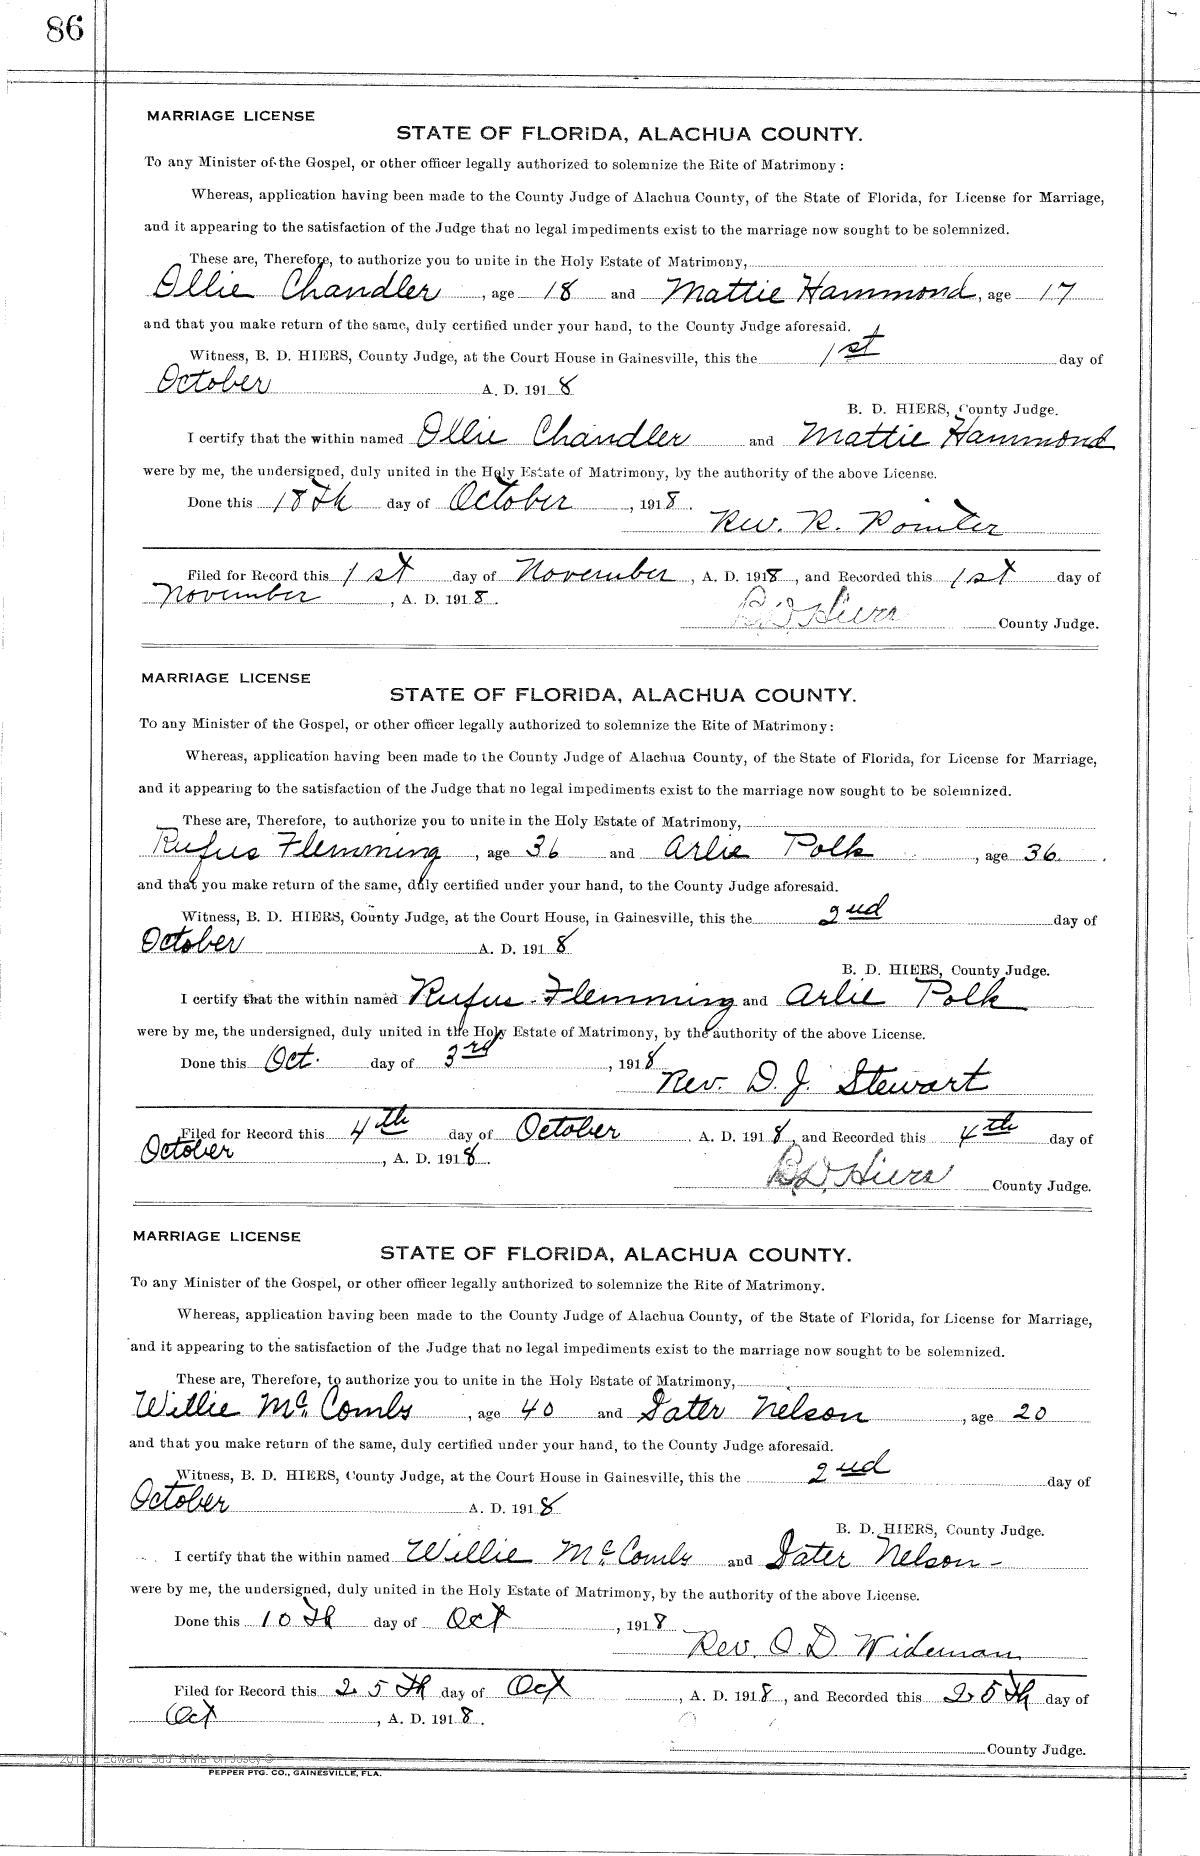 86
MARRIAGE LICENSE
STATE OF FLORIDA, ALACHUA COUNTY.
To any Minister of the Gospel, or other officer legally authorized to solemnize the Rite of Matrimony:
Whereas, application having been made to the County Judge of Alachua County, of the State of Florida, for License for Marriage,
and it appearing to the satisfaction of the Judge that no legal impediments exist to the marriage now sought to be solemnized.
These are, Therefore, to authorize you to unite in the Holy Estate of Matrimony,
Ollie Chandler, age 18 and Mattie Hammond, age 17
and that you make return of the same, duly certified under your hand, to the County Judge aforesaid.
Witness, B. D. HIERS, County Judge, at the Court House in Gainesville, this the 1st day of
October A. D. 1918
B. D. HIERS, County Judge.
I certify that the within named Ollie Chandler and Mattie Hammond
were by me, the undersigned, duly united in the Holy Estate of Matrimony, by the authority of the above License.
Done this 18th day of October, 1918.
Rev. R. Pointer
Filed for Record this 1st day of November, A. D. 1918, and Recorded this 1st day of
November, A. D. 1918.
B. D. Hiers County Judge.
MARRIAGE LICENSE
STATE OF FLORIDA, ALACHUA COUNTY.
To any Minister of the Gospel, or other officer legally authorized to solemnize the Rite of Matrimony:
Whereas, application having been made to the County Judge of Alachua County, of the State of Florida, for License for Marriage,
and it appearing to the satisfaction of the Judge that no legal impediments exist to the marriage now sought to be solemnized.
These are, Therefore, to authorize you to unite in the Holy Estate of Matrimony,
Rufus Flemming, age 36 and Arlie Polk, age 36
and that you make return of the same, duly certified under your hand, to the County Judge aforesaid.
Witness, B. D. HIERS, County Judge, at the Court House, in Gainesville, this the 2nd day of
October A. D. 1918
B. D. HIERS, County Judge.
I certify that the within named Rufus Flemming and Arlie Polk
were by me, the undersigned, duly united in the Holy Estate of Matrimony, by the authority of the above License.
Done this Oct. day of 3rd, 1918
Rev. D. J. Stewart
Filed for Record this 4th day of October A. D. 1918, and Recorded this 4th day of
October, A. D. 1918.
B. D. Hiers County Judge.
MARRIAGE LICENSE
STATE OF FLORIDA, ALACHUA COUNTY.
To any Minister of the Gospel, or other officer legally authorized to solemnize the Rite of Matrimony.
Whereas, application having been made to the County Judge of Alachua County, of the State of Florida, for License for Marriage,
and it appearing to the satisfaction of the Judge that no legal impediments exist to the marriage now sought to be solemnized.
These are, Therefore, to authorize you to unite in the Holy Estate of Matrimony,
Willie McCombs, age 40 and Sater Nelson, age 20
and that you make return of the same, duly certified under your hand, to the County Judge aforesaid.
Witness, B. D. HIERS, County Judge, at the Court House in Gainesville, this the 2nd day of
October A. D. 1918
B. D. HIERS, County Judge.
I certify that the within named Willie McCombs and Sater Nelson -
were by me, the undersigned, duly united in the Holy Estate of Matrimony, by the authority of the above License.
Done this 10th day of Oct, 1918
Rev. O. D. Wideman
Filed for Record this 25th day of Oct, A. D. 1918, and Recorded this 25th day of
Oct, A. D. 1918.
County Judge.
PEPPER PTG. CO., GAINESVILLE, FLA.